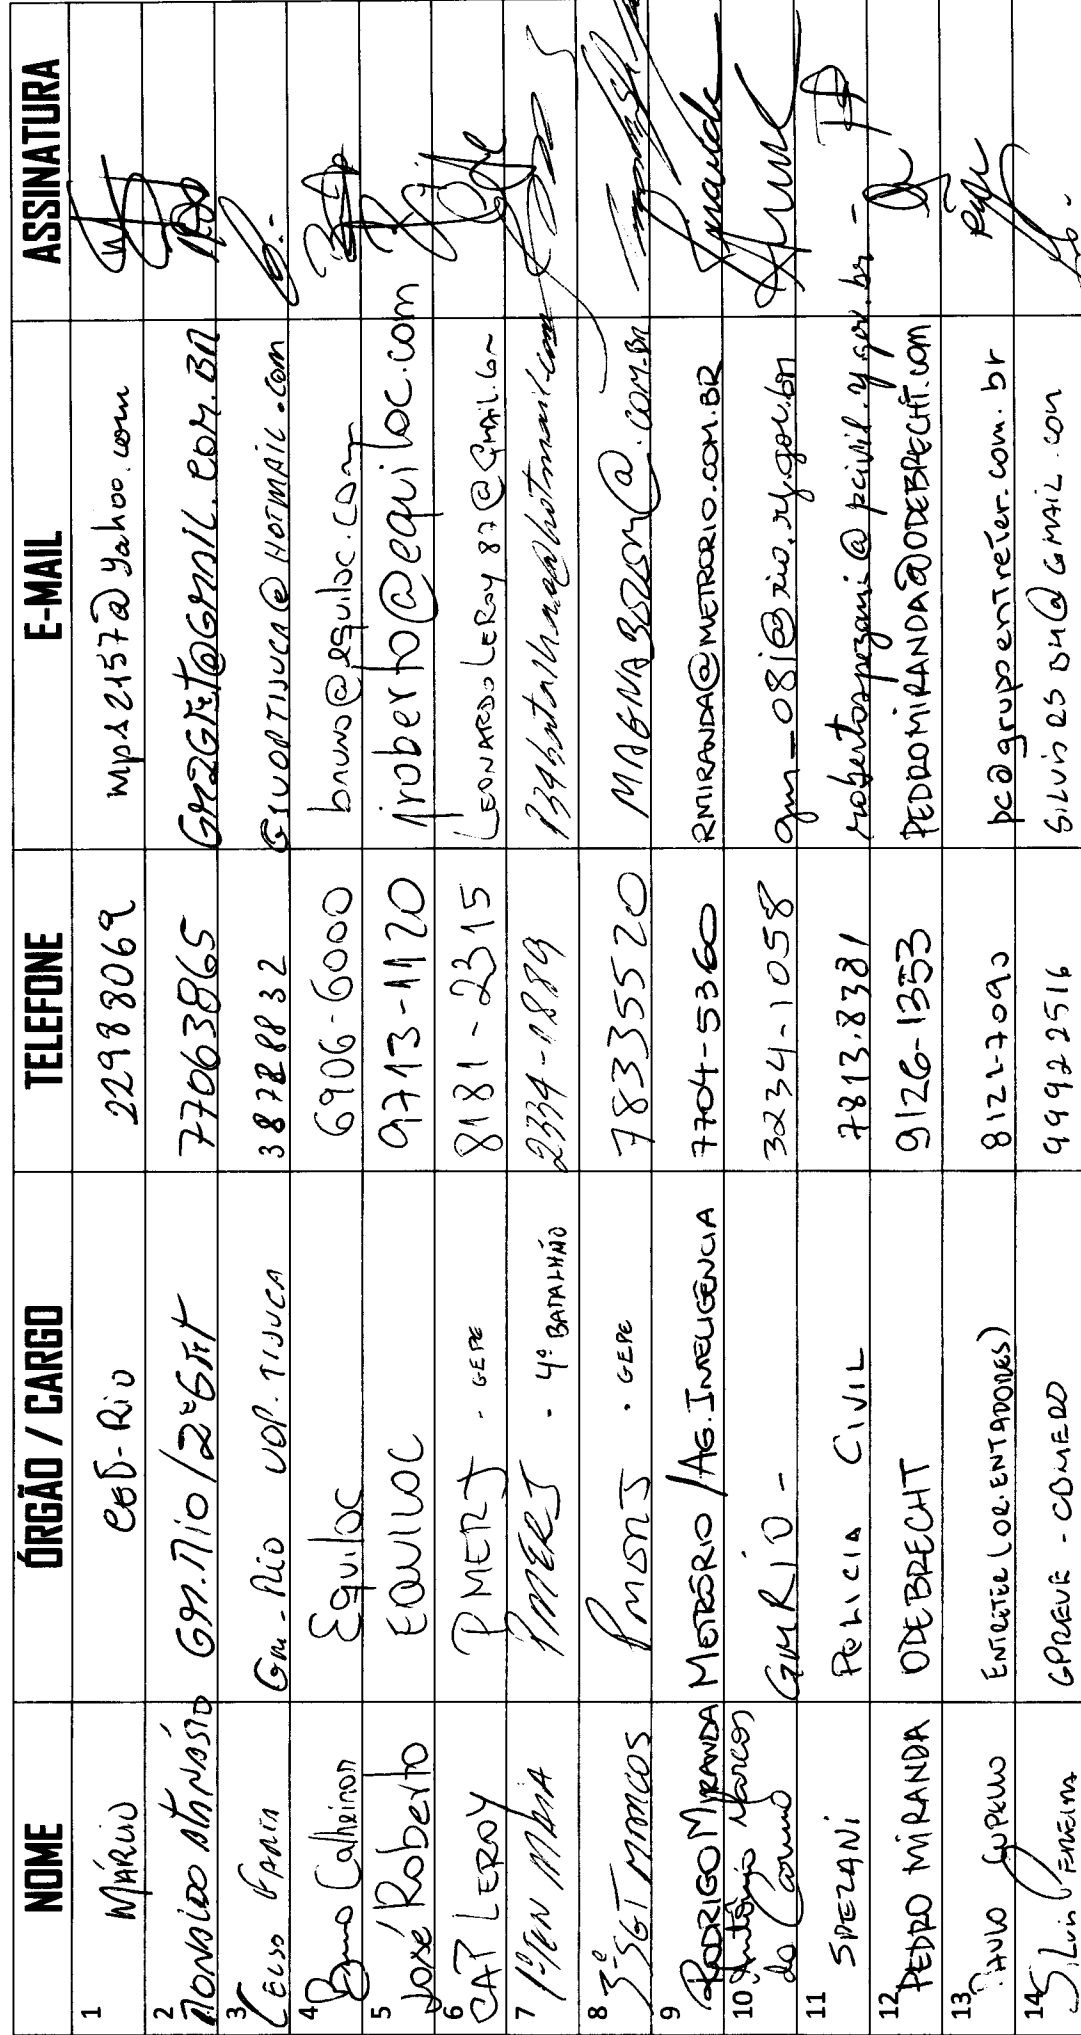 NOME ÓRGÃO / CARGO TELEFONE E-MAIL ASSINATURA
1 MÁRCIO CET-Rio 22988069 mps2157@yahoo.com
2 RONALDO ATANÁSIO GM.RIO / 2ª GMT 77063865
3 CELSO FARIA GM-RIO UOP.TIJUCA 38728832 GMUOPTIJUCA@HOTMAIL.COM
4 Bruno Calheiron Equiloc 6906-6000 bruno@equiloc.com
5 José Roberto EQUILOC 9713-1120 jroberto@equiloc.com
6 CAP LEROY PMERJ - GEPE 8181-2315 LEONARDOLEROY87@GMAIL.COM
7 1º TEN MAIA PMERJ - 4º BATALHÃO 2334-1889
8 3º SGT MARCOS PMERJ - GEPE 78335520
9 RODRIGO MIRANDA METRÔRIO / AG. INTELIGÊNCIA 7704-5360 RMIRANDA@METRORIO.COM.BR
10 Antônio Marcos
do Carmo GM RIO - 3234-1058 gm_08i@rio.rj.gov.br
11 SPEZANI POLICIA CIVIL 7813.8381 robertospezani@pcivil.rj.gov.br -
12 PEDRO MIRANDA ODEBRECHT 9126-1353 PEDROMIRANDA@ODEBRECHT.COM
13 PAULO ENTRETER (ORIENTADORES) 8122-7090 pc@grupoentreter.com.br
14 SILVIO FERREIRA GPREVE - COMERO 99922516